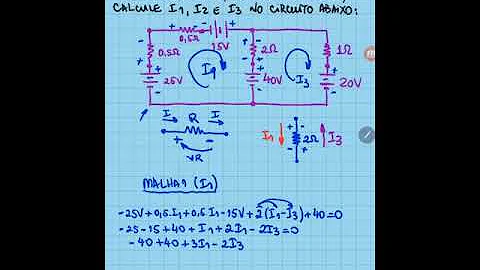 CALCULE I1, I2 E I3 NO CIRCUITO ABAIXO:
0,5Ω
15V
0,5Ω
2Ω
1Ω
I1
I3
25V
40V
20V
I
R
I
VR
I1
2Ω
I3
MALHA 1 (I1)
-25V+0,5.I1+0,5I1-15V+2(I1-I3)+40=0
-25-15+40+I1+2I1-2I3=0
-40+40+3I1-2I3